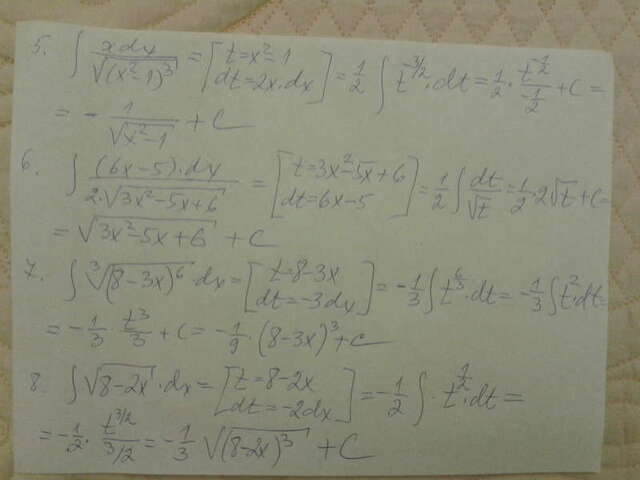 5. ∫ xdx/√(x²-1)³ = [t=x²-1 dt=2x·dx] = 1/2 ∫ t^(-3/2)·dt = 1/2 · t^(-1/2)/(-1/2) + C =
= - 1/√(x²-1) + C
6. ∫ (6x-5)·dx/(2·√(3x²-5x+6)) = [t=3x²-5x+6 dt=6x-5] = 1/2 ∫ dt/√t = 1/2·2√t + C =
= √(3x²-5x+6) + C
7. ∫ ³√(8-3x)⁶·dx = [t=8-3x dt=-3dx] = -1/3 ∫ t^(6/3)·dt = -1/3 ∫ t²·dt =
= -1/3 · t³/3 + C = -1/9 · (8-3x)³ + C
8. ∫ √(8-2x)·dx = [t=8-2x dt=-2dx] = -1/2 ∫ · t^(1/2)·dt =
= -1/2 · t^(3/2)/(3/2) = -1/3 √(8-2x)³ + C